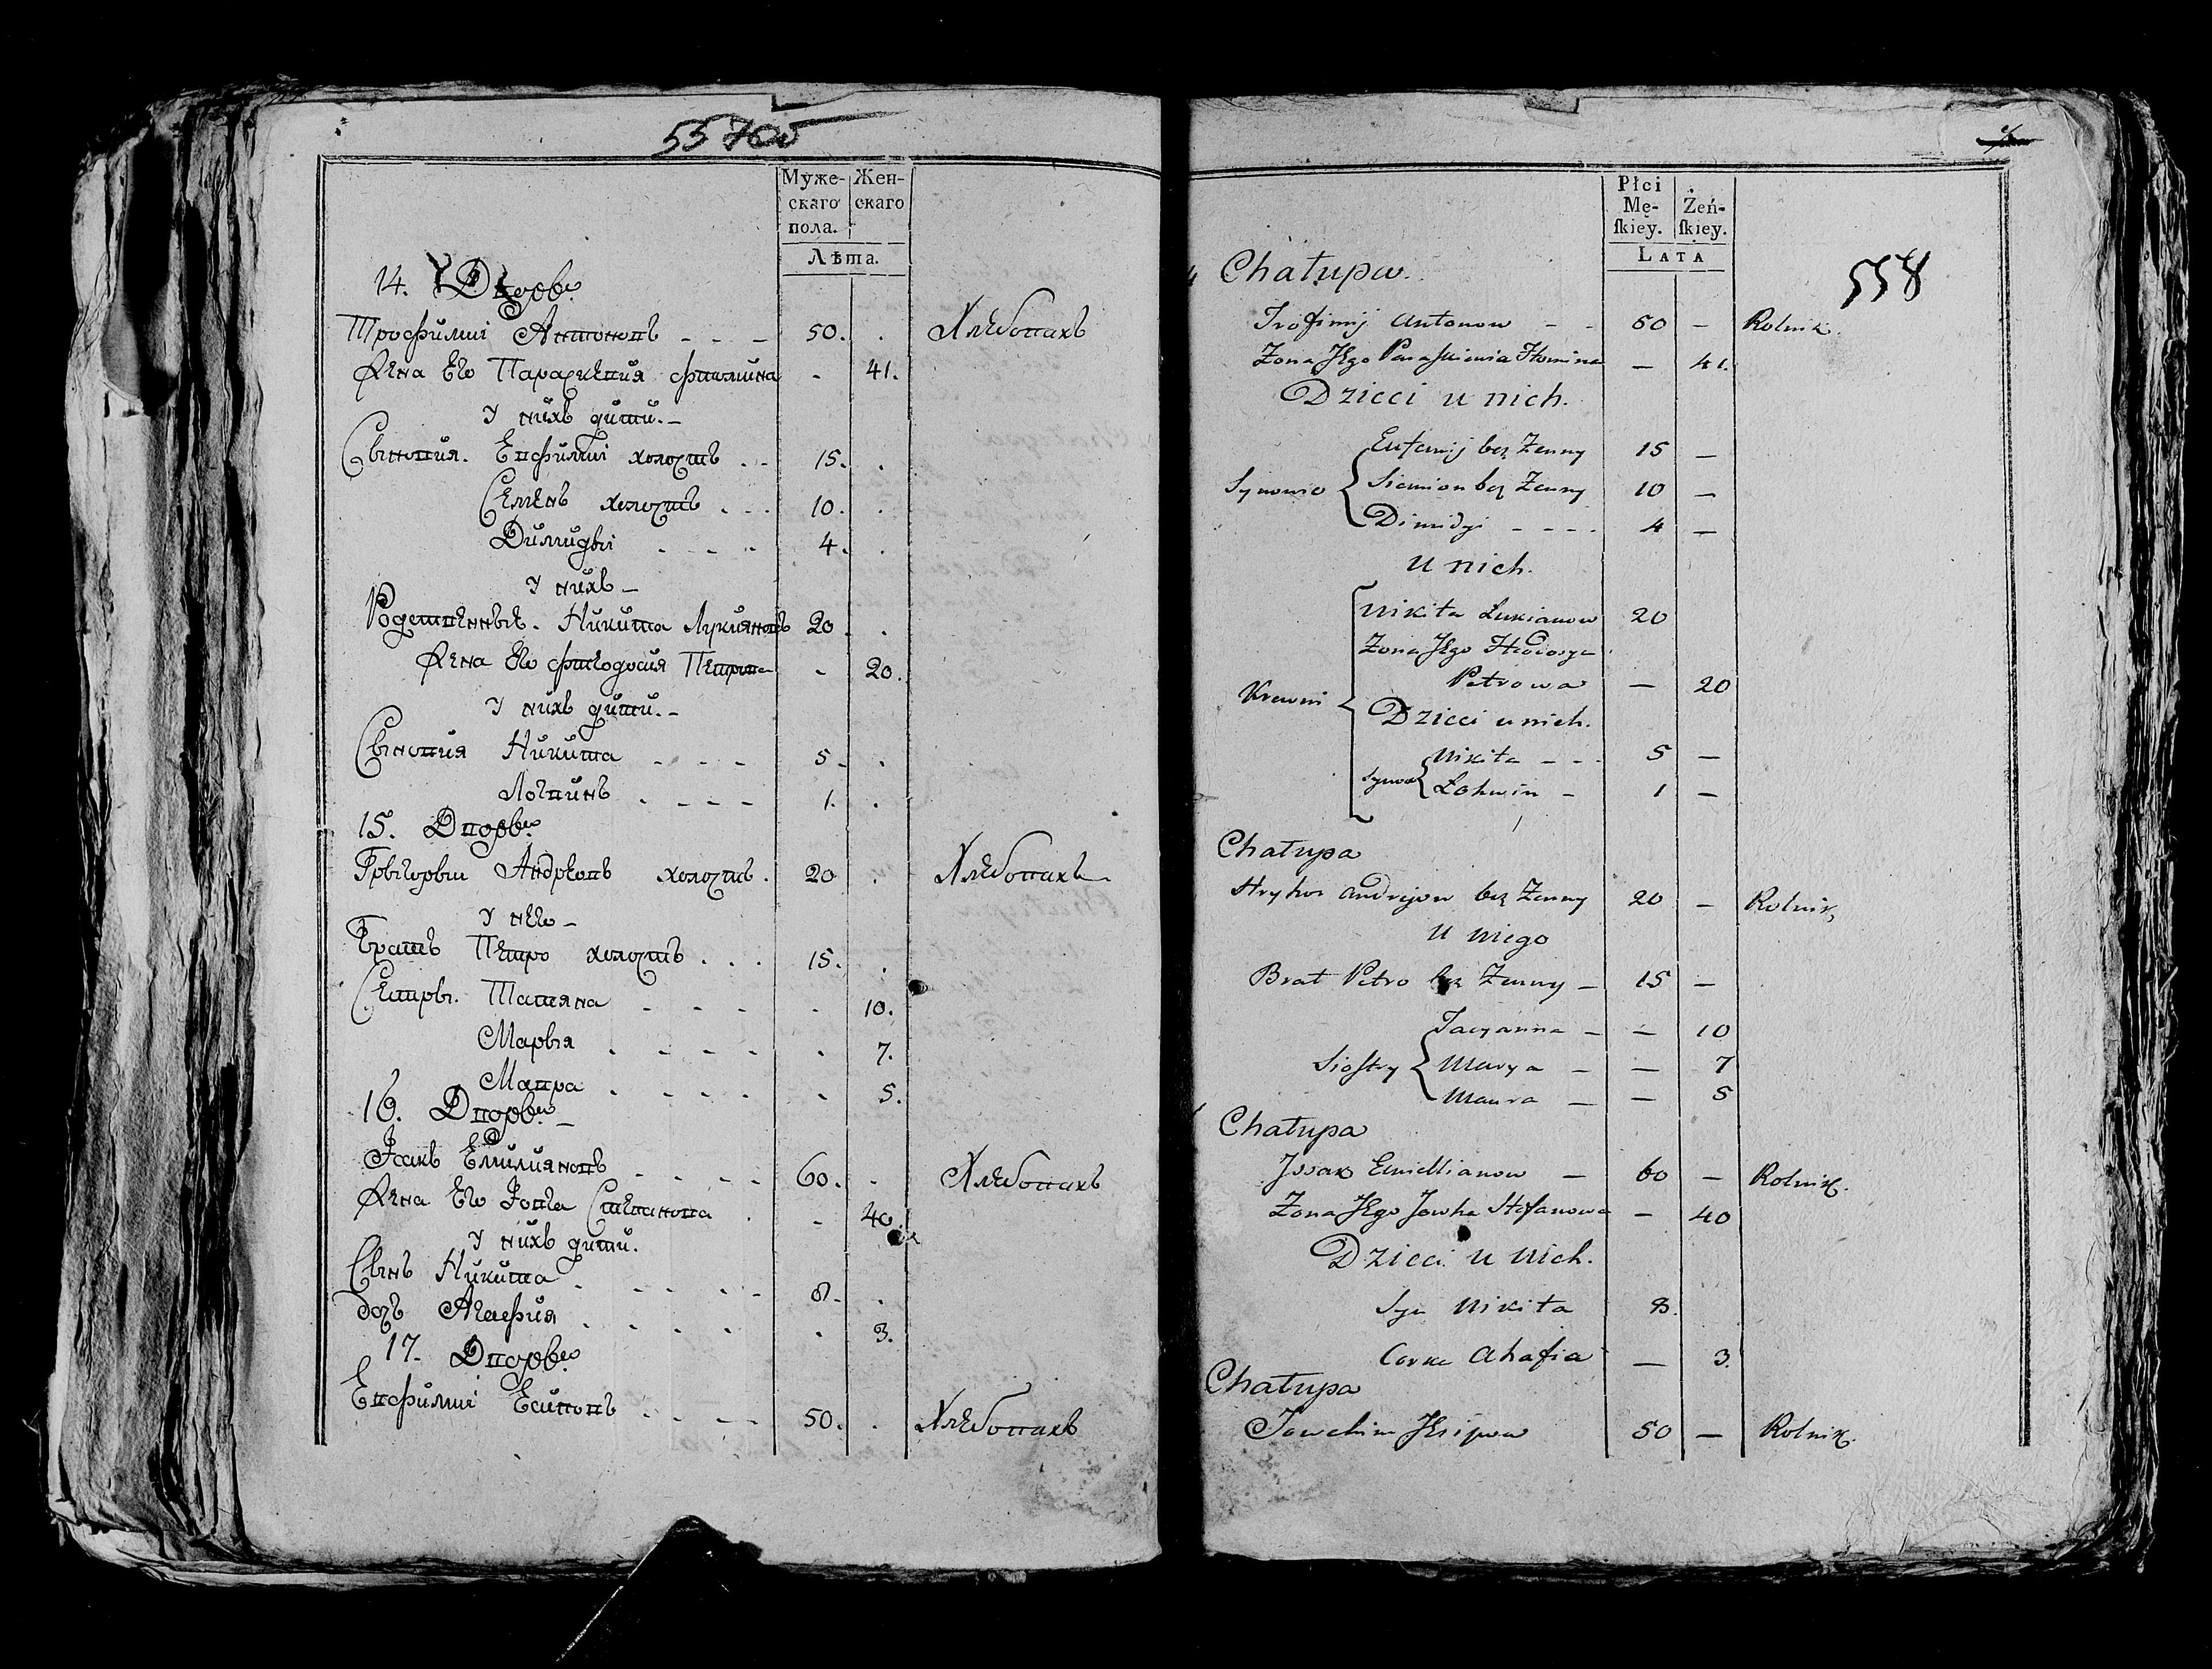 557об
Муже-
скаго
пола.
Жен-
скаго
Лѣта.
14. Дворъ
Трофимиі Антоновъ - - - 50. .
Хлебопахъ
Жена Его Параскевия Фомина - 41.
У нихъ дити. -
Сыновия. Евфимиі холостъ . - 15. .
Семенъ холостъ . . . 10. .
Димиды . - - - 4. .
У нихъ -
Родственныя. Никита Лукияновъ 20 .
Жена Его Феодосия Петрова - 20.
У нихъ дити. -
Сыновия Никита - - - 5. .
Логвинъ . - - - 1. .
15. Дворъ
Грыгорыи Андреовъ холостъ. 20 .
Хлебопахъ
У него -
Братъ Петро холостъ . . . 15. .
Сестры. Татяна - - - . 10.
Марыя . - - - . 7.
Мавра . - - - - 5.
16. Дворъ -
Isакъ Емилияновъ - - - 60. .
Хлебопахъ
Жена Его Iовга Степанова . - 40.
У нихъ дити.
Сынъ Никита . - - - 8. .
доч Агафия . . . . . 3.
17. Дворъ
Евфимиі Есиповъ . . - - 50. .
Хлебопахъ
558
Płci
Mę-
skiey.
Żeń-
skiey.
LATA
Chałupa.
Trofimij Antonow - - 50 -
Rolnik.
Żona Jego Paraskiewia Homina - 41.
Dzieci u nich.
Synowie
Eufemij bez Żenny 15 -
Siemion bez Żenny 10 -
Dimidyi - - - - 4 -
U nich.
Krewni
Nikita Lukianow 20
Żona Jego Hteodosya
Petrowa - 20
Dzieci u nich.
Synow
Nikita - - - 5 -
Lohwin - 1 -
Chałupa
Hryhor Andrejow bez Żenny 20 -
Rolnik,
U niego
Brat Petro bez Żenny - 15 -
Siostry
Tacyanna - - 10
Marya - - 7
Maura - - 5
Chałupa
Jssak Emillianow - 60 -
Rolnik.
Żona Jego Jowha Stefanowa - 40
Dzieci u nich.
Syn Nikita 8.
Corka Ahafia - 3.
Chałupa
Jowchim Jesipow 50 -
Rolnik.